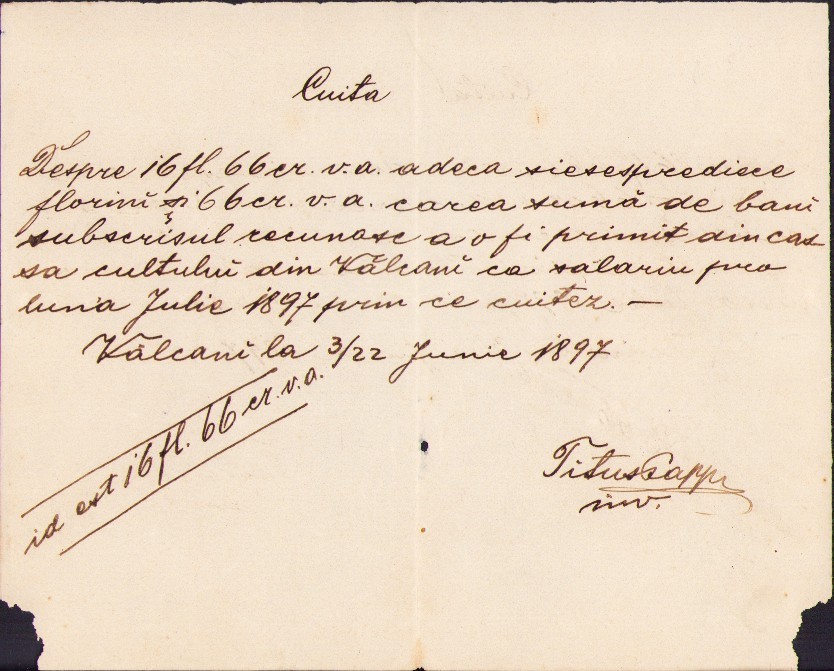 Cuita
Despre 16 fl. 66 cr. v. a. adeca siesespredisece
florinĭ și 66 cr. v. a. carea sumă de banĭ
subscrisul recunosc a o fi primit din cas
sa cultuluĭ din Vălcanĭ ca salariu pro
luna Julie 1897 prin ce cuitez. —
Vălcanĭ la 3/22 Junie 1897
id est 16 fl. 66 cr. v. a.
Titus Pappu
inv.